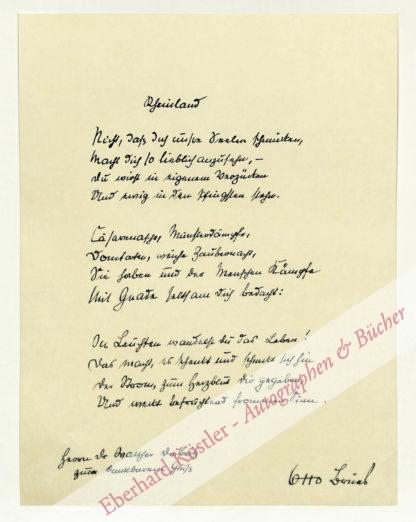 Rheinland
Nicht, daß dich unsre Seelen schmückten,
Macht dich so lieblich anzusehn, –
Du wirst in eigenem Verzücken
Und ewig in den Pfingsten stehn.
Cäsarenmacht, Münsterdämpfe,
Domtaten, Zaubernacht,
Die haben und der Menschen Kämpfe
Mit Gnade seltsam dich bedacht:
In Leuchten wandelst du das Leben!
Das macht, es schenkt und schenkt sich hin
Der Strom, zum Herzblut dir gegeben,
Und weckt befruchtend frommen Sinn.
Herrn Dr Walther
zum dankbaren Gruß
Otto Brües
Eberhard Köstler - Autographen & Bücher